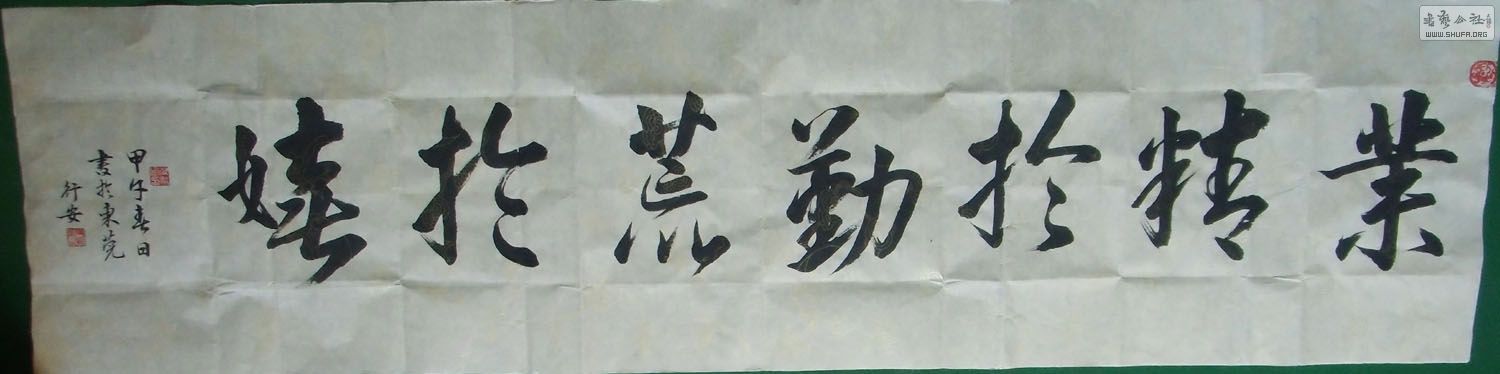 業精於勤荒於嬉
甲午春日
書於東莞
行安
書藝公社
WWW.SHUFA.ORG